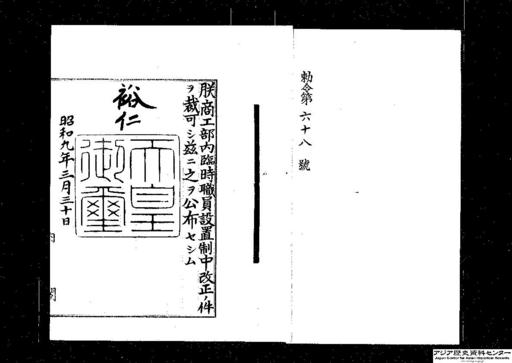 勅令第六十八號
朕商工部內臨時職員設置制中改正ノ件
ヲ裁可シ玆ニ之ヲ公布セシム
裕仁
天皇
御璽
昭和九年三月三十日
内閣
アジア歴史資料センター
Japan Center for Asian Historical Records